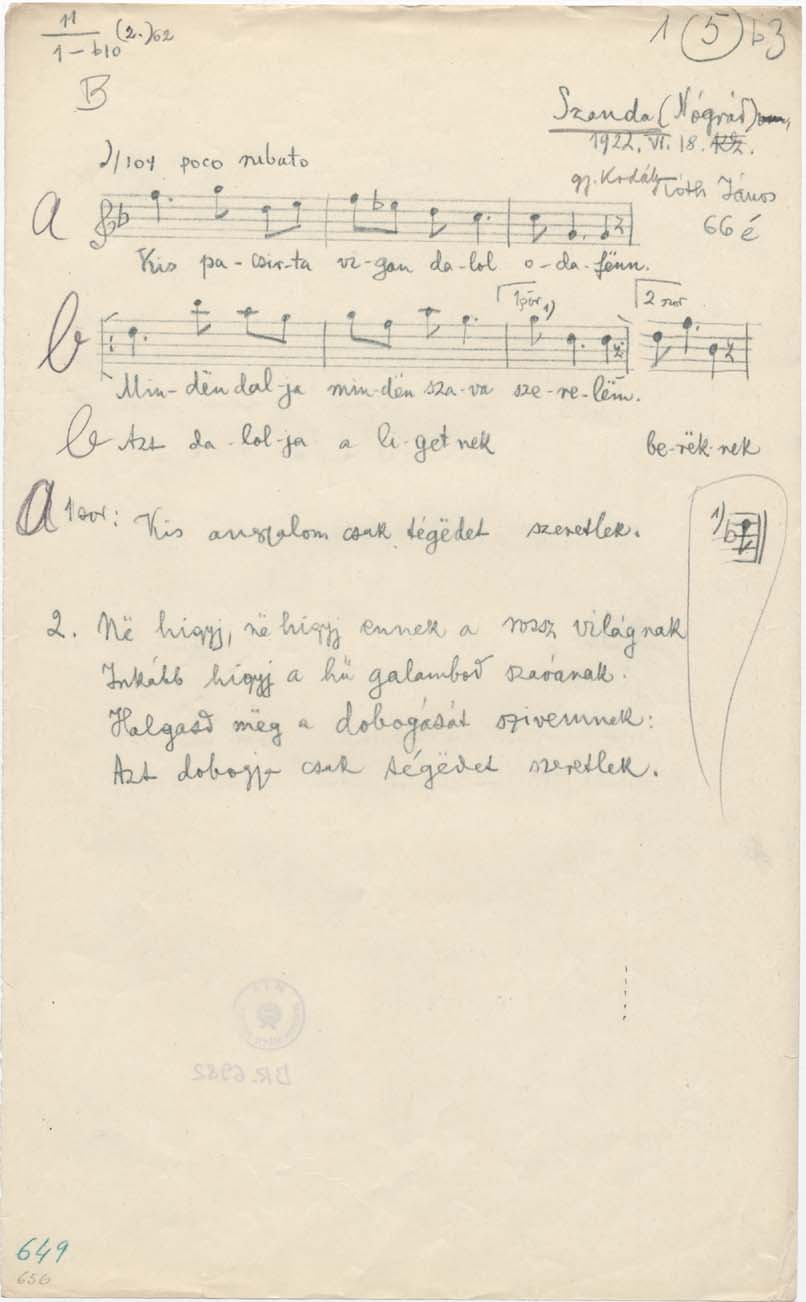 11
1 – b10 (2.) 62
1 (5) b3
B
Szanda (Nógrád)
1922. VI. 18.
poco rubato
gy. Kodály
Tóth János
66 é
a
Kis pa-csir-ta vi-gan da-lol o-da-fënn.
b
1 szor 1)
2 szor
Min-dën dal-ja min-dën sza-va sze-re-lëm.
b Azt da-lol-ja a li-getnek be-rëk-nek
a 1 sor: Kis angyalom csak tégëdet szeretlek.
1)
2. Në higyj, në higyj ennek a rossz világnak
Inkább higyj a hű galambod szavának.
Halgasd mëg a dobogását szivemnek:
Azt dobogja csak tégëdet szeretlek.
BR. 6982
649
656